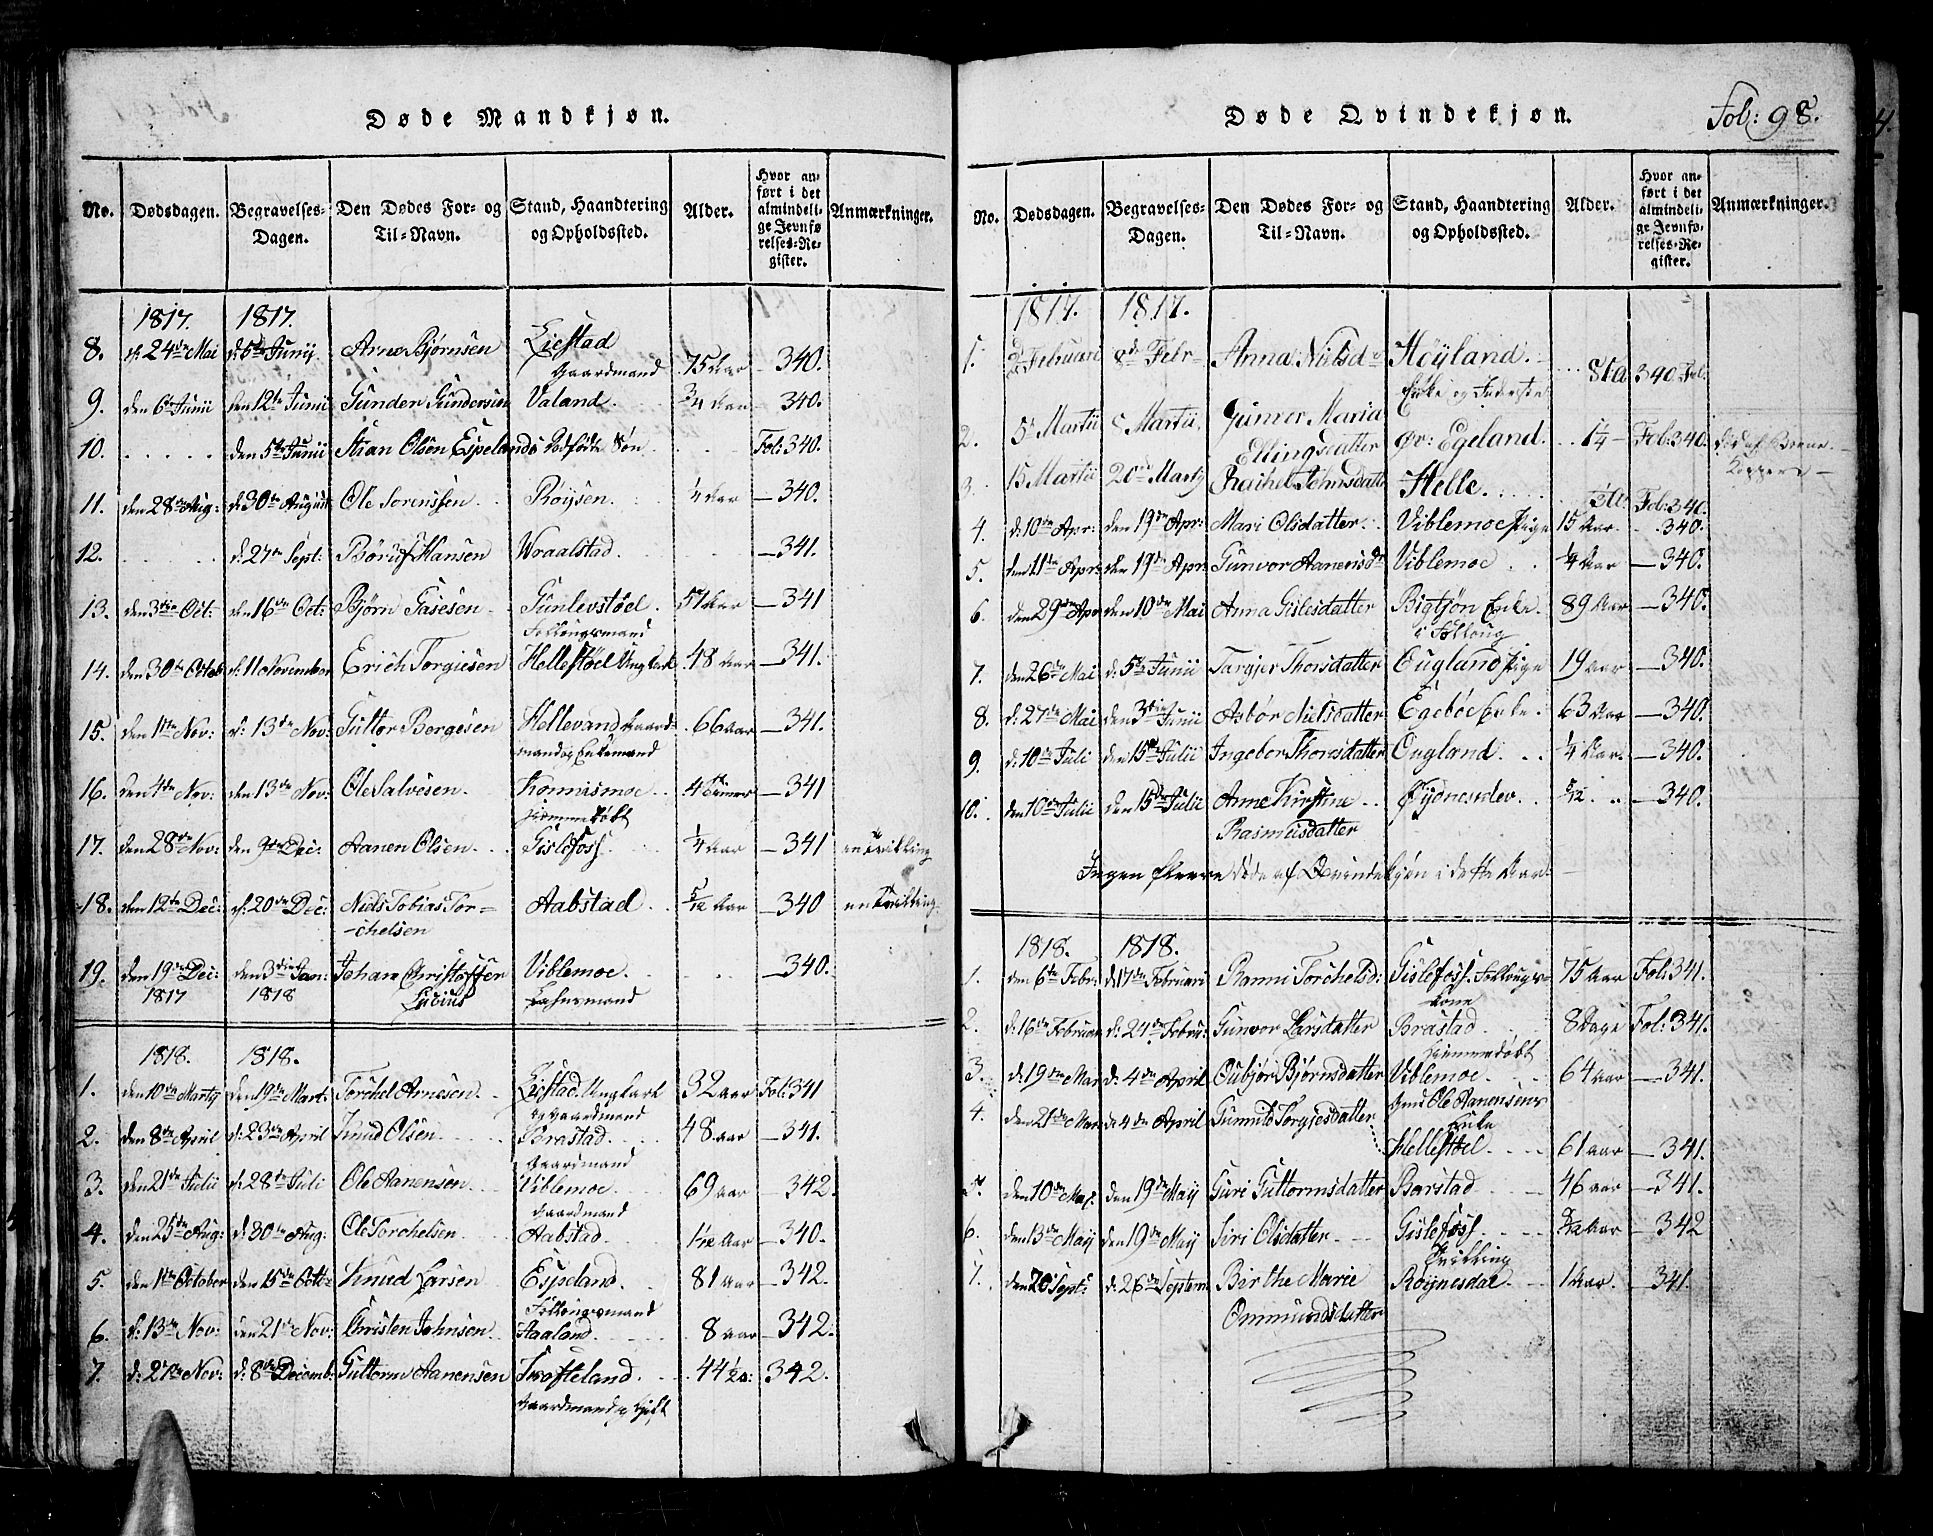 Døde Mandkjøn.
No. Dødsdagen. Begravelses-Dagen. Den Dødes For- og Til-Navn. Stand, Haandtering og Opholdssted. Alder. Hvor anført i det almindelige Jevnførelses-Register. Anmærkninger.
1817. 1817.
8. d. 24de Mai d: 5te Junij Arne Bjørnsen Liestad 75 Aar 340.
Gaardmand
9. den 6te Junii den 12te Junii Gunder Gundersen Valand. 3/4 Aar 340.
10. den 5te Junii Olsen Espelands Dødfødte Søn Fol: 340.
11. den 28de Aug: d: 30te August Ole Sorenssen Röysen. 1/4 Aar 340.
12. d. 27de Sept: Hansen Vraalstad. 341.
13. den 3die Oct: den 16de Oct: Bjørn Tasesen Gunlevstøel. 51 Aar 341
Follougsmand
14. den 30te Octob d: 11 November Erich Torgiesen Hellestøel Ungkarl 48 Aar 341.
15. den 1ste Nov: d: 13de Nov: Guttor Bergesen Hellevand Gaard- 66 Aar 341.
mand og Enkemand
16. den 4de Nov: den 13de Nov: Ole Salvesen Konnismoe 4 341
hiemmedøbt
17. den 28de Nov: den 9de Dec: Aanen Olsen Gislefoss 1/4 Aar 341 en Tvilling
18. den 12te Dec: d. 20de Dec: Niels Tobias Tor- Aabstad 5/12 Aar 340 en Tvilling
-chelsen
19. den 19de Dec: den 3die Jan: Johan Christoffer Viblemoe. 340.
1817 1818 Lucius Lehnsmand
1818. 1818.
1. den 10de Martij den 19de Mart: Torchel Arnesen Liestad. Ungkarl 32 Aar Fol: 341
og Gaardmand
2. den 8de April d. 23de April Knud Olsen Brastad 48 Aar 341.
Gaardmand
3. den 21de Julii d: 28de Juli Ole Aanensen Viblemoe 69 Aar 342.
Gaardmand
4. den 25de Aug: d: 30te Aug: Ole Torchelsen Aabstad 1 1/12 Aar 340.
5. den 1ste October den 15de Octb Knud Larsen Espeland. 81 Aar 342.
Follougsmand
6. d: 13de Nov: den 21de Nov: Christen Johnsen Haaland. 8 Aar 342.
7. d: 27de Nov: d: 8de Decemb: Guttorm Aanensen 44 1/2 342.
Gaardmand og Gift
Døde Qvindekjøn. Fol: 98.
No. Dødsdagen. Begravelses-Dagen. Den Dødes For- og Til-Navn. Stand, Haandtering og Opholdssted. Alder. Hvor anført i det almindelige Jevnførelses-Register. Anmærkninger.
1817. 1817.
1. Februari 8de Febr Anna Nielsd Höyland. 340 Fol:
Enke og Inderste
2. 5te Martii Martii Gunvor Maria
Ellingsdatter Øv: Egeland. 1 1/4 Fol: 340. død af Børne-
Kopperne
3. 15 Martii 20de Martij Rachel Johnsdatt Helle. Fol: 340.
4. d: 10de Apr: den 19de Apr: Mari Olsdatter Viblemoe Pige 15 Aar 340.
5. den 11te Apr: den 19de Apr: Gunvor Aanensdr Viblemoe 1/4 Aar 340.
6. den 29de Apr den 10de Mai Anna Gislesdatter Bigtjøn Enke 89 Aar 340.
i Folloug
7. den 26de Mai d: 5te Junii Targjer Thorsdatter Eugland Pige 19 Aar 340.
8. d: 27de Mai den 3die Junii Asbör Nielsdatter Egebøe Enke. 63 Aar 340.
9. d: 10de Juli den 15de Julii Ingebor Thorsdatter Eugland. 1/4 Aar. 340.
10. den 10de Julii den 15de Julii Anne Kirstine 5/12 340.
Rasmusdatter
Ingen fleere døde af Qvindekjøn i dette Aar
1818. 1818.
1. den 6te Febr: d. 17de Februari Ranni Torchelsd: Gislefoss. Follougs- 75 Aar Fol: 341.
kone
2. d: 16de Februar d: 24de Febru: Gunvor Larsdatter Brastad 8 Dage Fol: 341.
hiemmedøbt
3. d: 19de Mar d: 4de April Oubjør Bjørnsdatter Viblemoe 64 Aar 341.
Ole Aanensens
Enke
4. den 21de Mar den 4de April Gunnild Torgjesdatter
Hellestøel 61 Aar 341.
5. den 10de May. den 19de Maij Guri Guttormsdatter Barstad 46 Aar 341.
6. den 13de Maij den 19de Maij Siri Olsdatter Gislefoss. Aar 342
Tvilling
7. den 20 Sept: d: 26de Septem Birthe Marie Röynesdal 1 Aar. 341.
Ommundsdatter